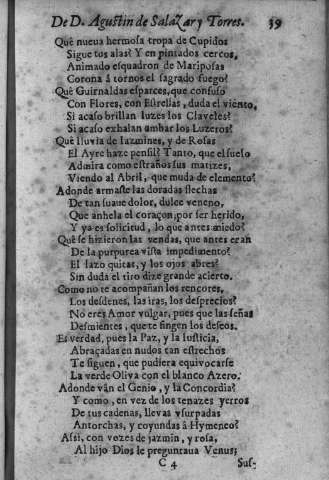 De D. Agustin de Salazar y Torres. 39
Què nueua hermosa tropa de Cupidos
Sigue tus alas? Y en pintados cercos,
Animado esquadron de Mariposas
Corona à tornos el sagrado fuego?
Què Guirnaldas esparces, que confuso
Con Flores, con Estrellas, duda el viento,
Si acaso brillan luzes los Claveles?
Si acaso exhalan ambar los Luzeros?
Què lluvia de Iazmines, y de Rosas
El Ayre haze pensil? Tanto, que el suelo
Admira como estraños sus matizes,
Viendo al Abril, que muda de elemento?
Adonde armaste las doradas flechas
De tan suaue dolor, dulce veneno,
Que anhela el coraçon, por ser herido,
Y ya es solicitud, lo que antes miedo?
Què se hizieron las vendas, que antes eran
De la purpurea vista impedimento?
El lazo quitas, y los ojos abres?
Sin duda el tiro dize grande acierto.
Como no te acompañan los rencores,
Los desdenes, las iras, los desprecios?
No eres Amor vulgar, pues que las señas
Desmientes, que te fingen los deseos.
Es verdad, pues la Paz, y la Iusticia,
Abraçadas en nudos tan estrechos
Te siguen, que pudiera equivocarse
La verde Oliva con el blanco Azero.
Adonde vàn el Genio, y la Concordia?
Y como, en vez de los tenazes yerros
De tus cadenas, llevas vsurpadas
Antorchas, y coyundas à Hymeneo?
Assi, con vozes de jazmin, y rosa,
Al hijo Dios le preguntaua Venus;
C 4 Sus-